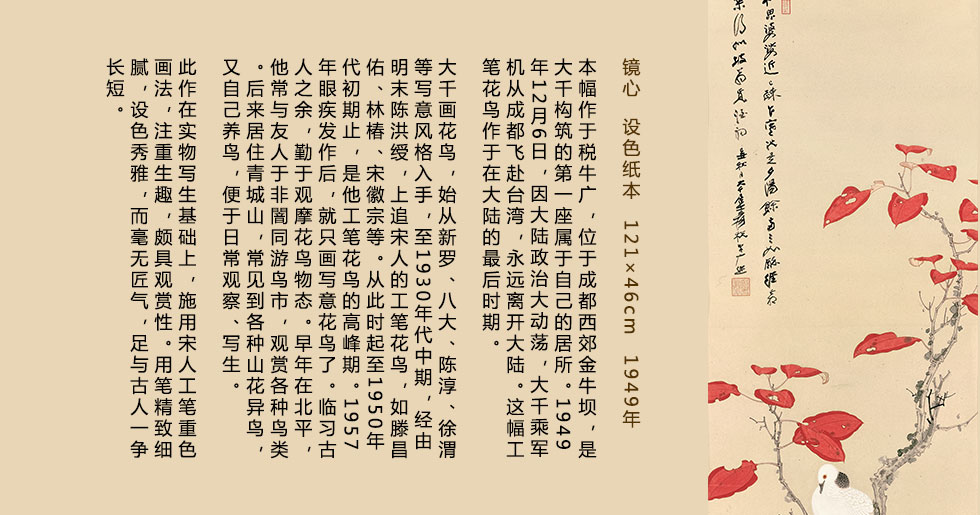 镜心　设色纸本　121×46cm　1949年
本幅作于税牛广，位于成都西郊金牛坝，是
大千构筑的第一座属于自己的居所。1949
年12月6日，因大陆政治大动荡，大千乘军
机从成都飞赴台湾，永远离开大陆。这幅工
笔花鸟作于在大陆的最后时期。
大千画花鸟，始从新罗、八大、陈淳、徐渭
等写意风格入手，至1930年代中期，经由
明末陈洪绶，上追宋人的工笔花鸟，如滕昌
佑、林椿、宋徽宗等。从此时起至1950年
代初期止，是他工笔花鸟的高峰期。1957
年眼疾发作后，就只画写意花鸟了。临习古
人之余，勤于观摩花鸟物态。早年在北平，
他常与友人于非闇同游鸟市，观赏各种鸟类
。后来居住青城山，常见到各种山花异鸟，
又自己养鸟，便于日常观察、写生。
此作在实物写生基础上，施用宋人工笔重色
画法，注重生趣，颇具观赏性。用笔精致细
腻，设色秀雅，而毫无匠气，足与古人一争
长短。